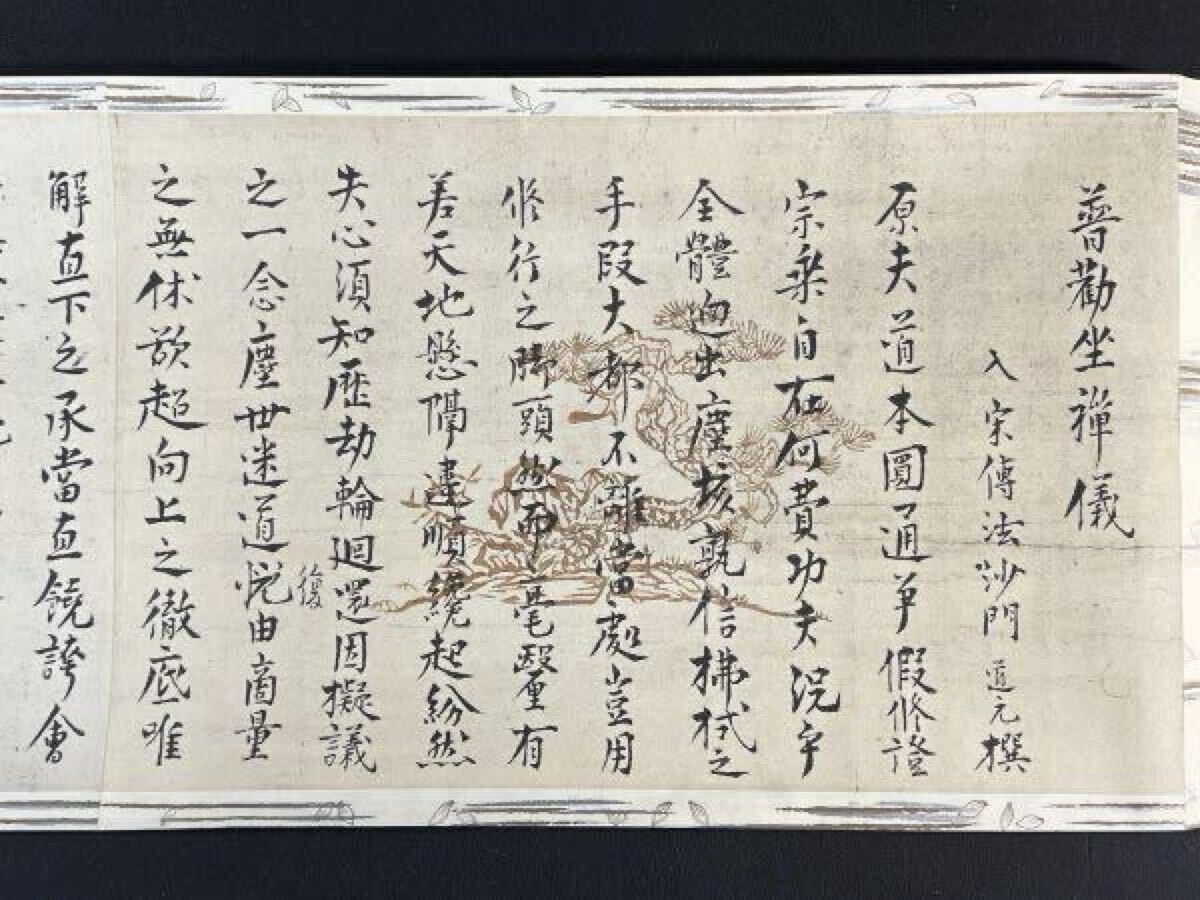 普勸坐禪儀
入宋傳法沙門道元撰
原夫道本圓通爭假修證
宗乘自在何費功夫況乎
全體迥出塵埃孰信拂拭之
手段大都不離當處豈用
修行之脚頭然而毫釐有
差天地懸隔違順纔起紛然
失心須知歷劫輪廻還因擬議
之一念塵世迷道復由商量
之無休欲超向上之徹底唯
解直下之承當直饒誇會